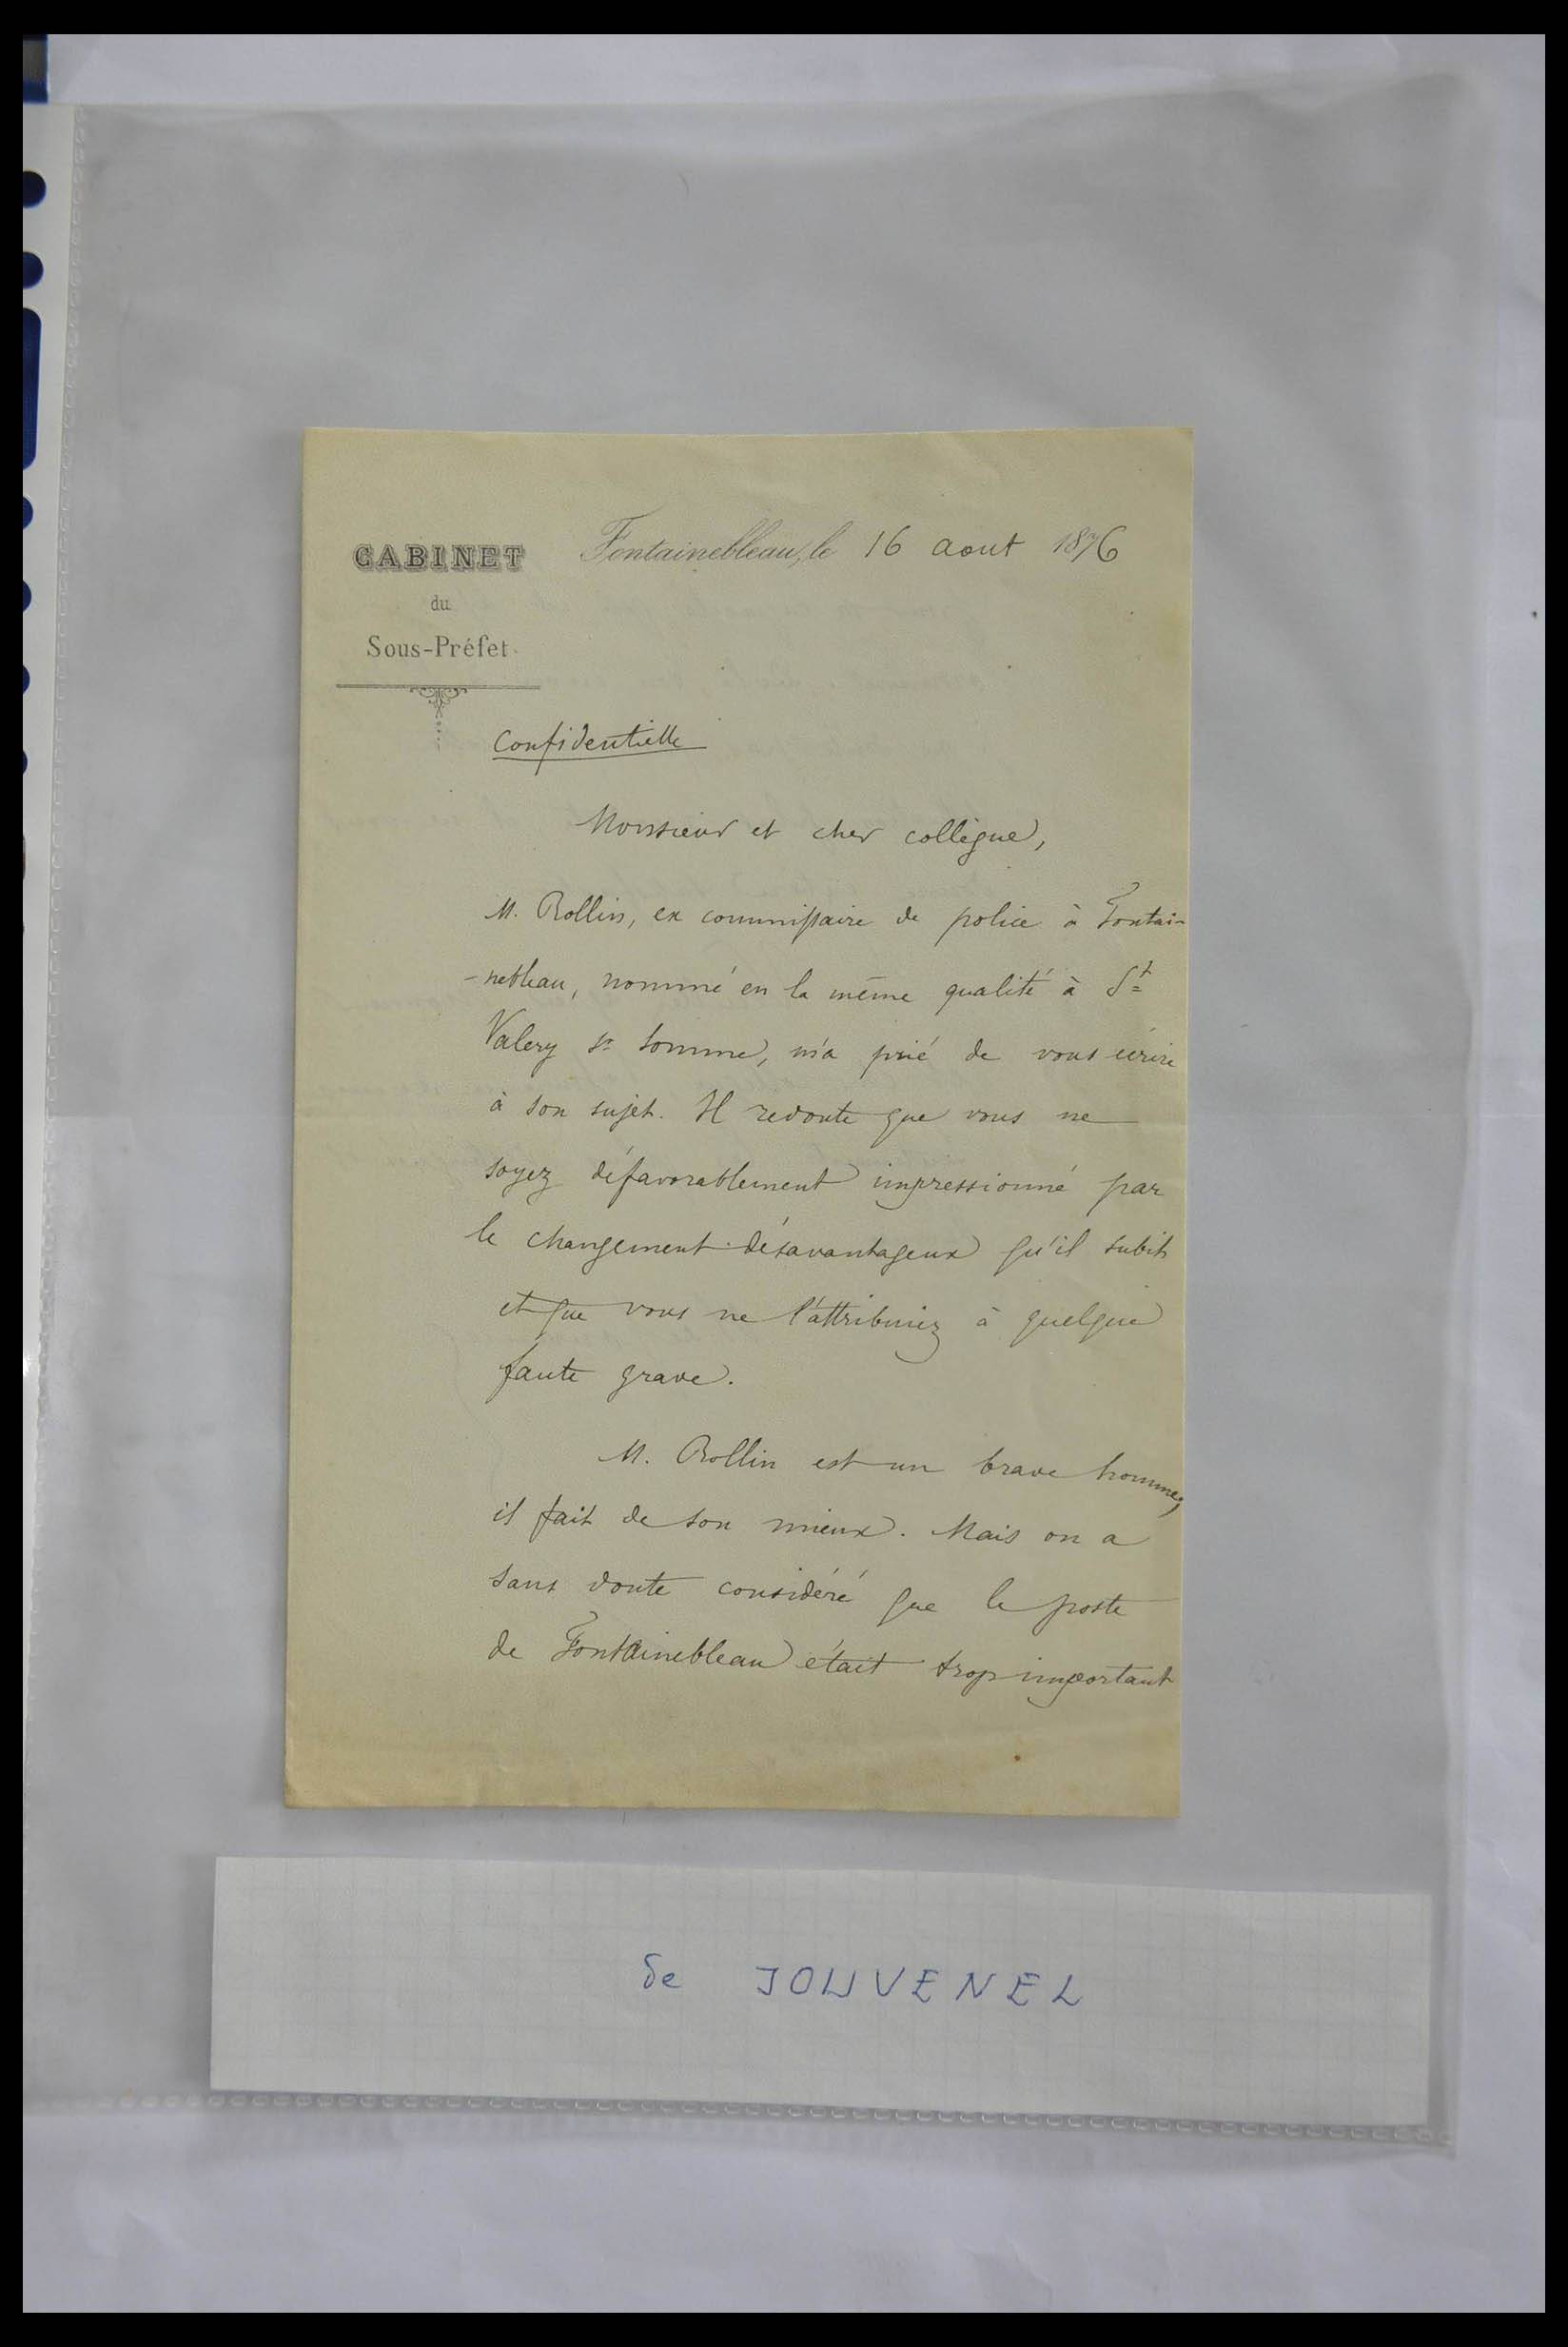 CABINET
du
Sous-Préfet
Fontainebleau, le 16 aout 1876
Confidentielle
Monsieur et cher collègue,
M. Rollin, ex commissaire de police à Fontai-
-nebleau, nommé en la même qualité à St
Valery sr Somme, m'a prié de vous écrire
à son sujet. Il redoute que vous ne
soyez défavorablement impressionné par
le changement désavantageux qu'il subit
et que vous ne l'attribuiez à quelque
faute grave.
M. Rollin est un brave homme,
il fait de son mieux. Mais on a
sans doute considéré que le poste
de Fontainebleau était trop important
de JOUVENEL